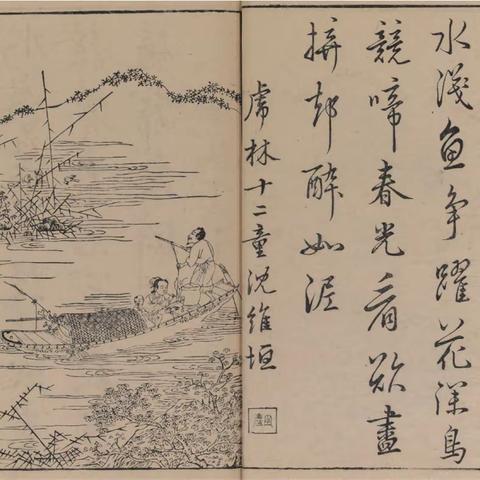 水淺魚争躍花深鳥
競啼春光看欲盡
拚却醉如泥
虎林十二童沈維垣